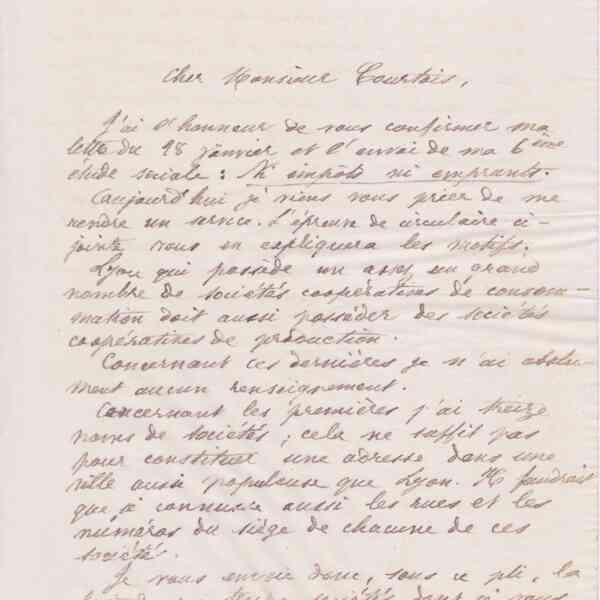 Cher Monsieur Courtois,
J'ai l'honneur de vous confirmer ma
lettre du 28 janvier et l'envoi de ma 6ème
étude sociale : Ni impôts ni emprunts.
Aujourd'hui je viens vous prier de me
rendre un service. L'épreuve de circulaire ci-
jointe vous en expliquera les motifs.
Lyon qui possède un assez grand
nombre de sociétés coopératives de consom-
mation doit aussi posséder des sociétés
coopératives de production.
Concernant ces dernières je n'ai absolu-
ment aucun renseignement.
Concernant les premières j'ai treize
noms de sociétés ; cela ne suffit pas
pour constituer une adresse dans une
ville aussi populeuse que Lyon. Il faudrait
que je connusse aussi les rues et les
numéros du siège de chacune de ces
sociétés.
Je vous envoie donc, sous ce pli, la
sociétés dont je vous